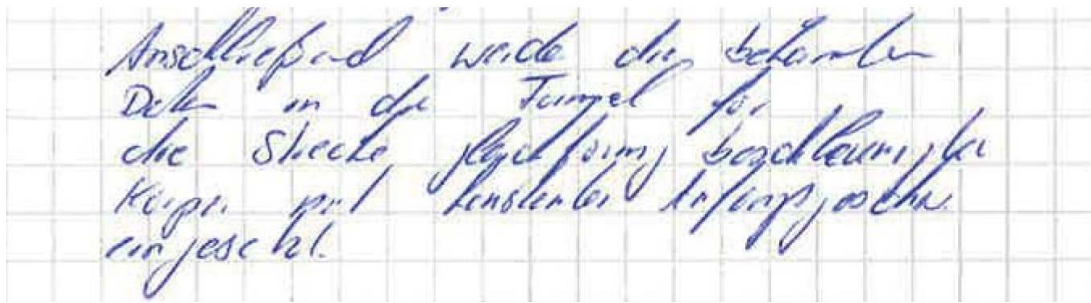 Anschließend werde die bekannten
Daten in die Formel für
die Strecke gleichförmig beschleunigter
Körper mit konstanter Anfangsgeschw.
eingesetzt.